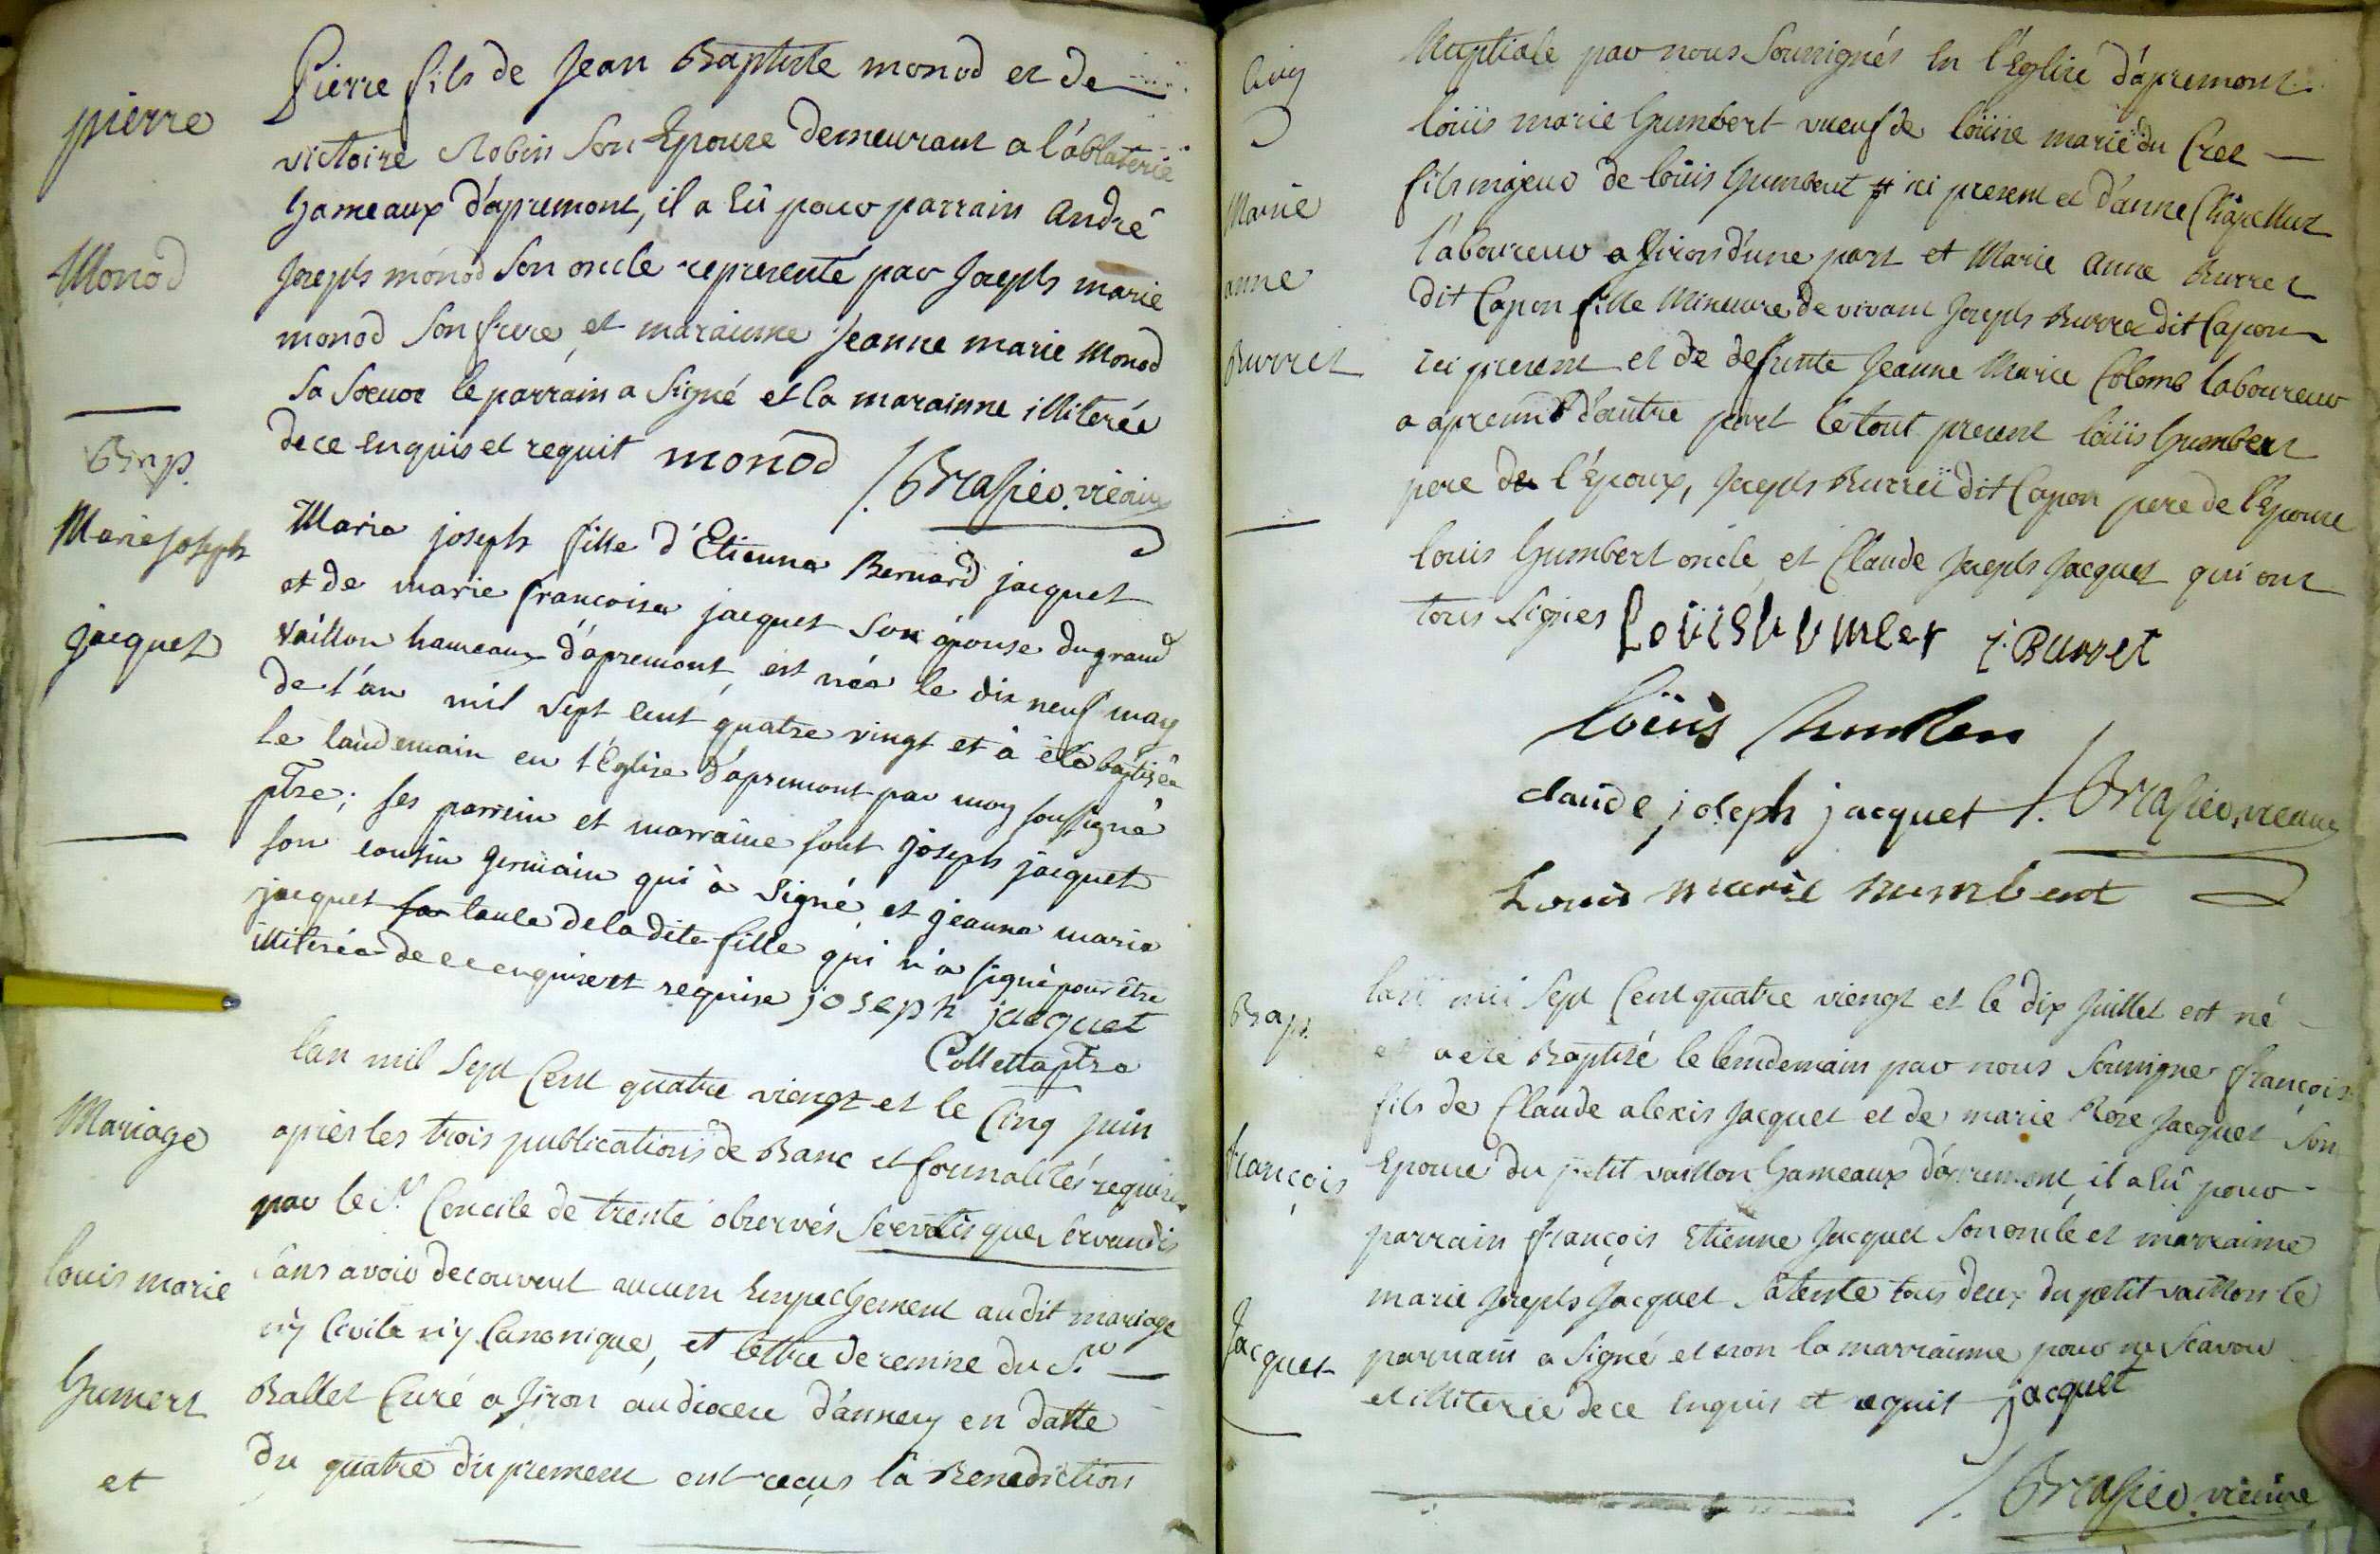 pierre
Monod
Pierre fils de Jean Baptiste monod et de
victoire Robin Son Epouse demeurant a l'ablaterie
hameaux d'apremont, il a Eû pour parrain André
Joseph monod Son oncle representé par Joseph marie
monod Son frere, et marainne Jeanne marie Monod
Sa Soeuor le parrain a Signé et la marainne illiterée
de ce Enquis et requit monod
/. Brasier. vicaire
Bap.
Marie joseph
jacquet
Marie joseph fille d'Etienne Bernard jacquet
et de marie francoise jacquet Son épouse du grand
vaillon hameaux d'apremont, est née le dix neuf may
de l'an mil sept cent quatre vingt et à été baptisée
le landemain en l'Eglise d'apremont par moy soussigné
ptre; ses parrein et marraine sont joseph jacquet
son cousin germain qui à signé, et jeanne marie
jacquet sa tante de la dite fille qui n'a signé pour être
illiterée de ce enquise et requise joseph jacquet
Colletta ptre
Mariage
louis marie
humert
et
lan mil Sept Cent quatre viengt et le Cinq juin
après les trois publications de Banc et formalités requises
par le St. Concile de trente observés Servatis que Servandis
Sans avoir decouvert aucum Empechement audit mariage
n'y Civile n'y Canonique, et lettre de remise du Sr.
Ballet Curé a Jiron au diocese d'annecy en datte
du quatre du present ont recus la Benediction
Marie
anne
Burret
Nuptiale par nous Soussignés En l'Eglise d'apremont
loüis marie humbert vueuf de loüise marie du Cret
fils majeur de loüis humbert ici present et d'anne Chapelluz
laboureur a Jiron d'une part et Marie anne Burret
dit Capon fille Mineure de vivant Joseph Burret dit Capon
ici present et de defunte Jeanne Marie Colomb laboureur
a apremt d'autre part le tout present loüis humbert
pere de l'Epoux, Joseph Burret dit Capon pere de l'Epouse
louis humbert oncle et Claude Joseph Jacquet qui ont
tous Signés Loüis humber J. Burret
loüis humber
claude joseph jacquet /. Brasier. vicaire
Louis marie humbert
Bap.
françois
Jacquet
lan mil Sept Cent quatre viengt et le dix Juillet est né
et a eté Baptisé le lendemain par nous Soussigné françois
fils de Claude alexis Jacquet et de marie Rose Jacquet Son
Epouse du petit vaillon hameaux d'apremont, il a Eû pour
parrain françois Etienne Jacquet Son oncle et marrainne
marie Joseph Jacquet Sa tente tous deux du petit vaillon le
parrain a Signé et non la marrainne pour ne Scavoir
et illiterée de ce Enquis et requit jacquet
/. Brasier. vicaire